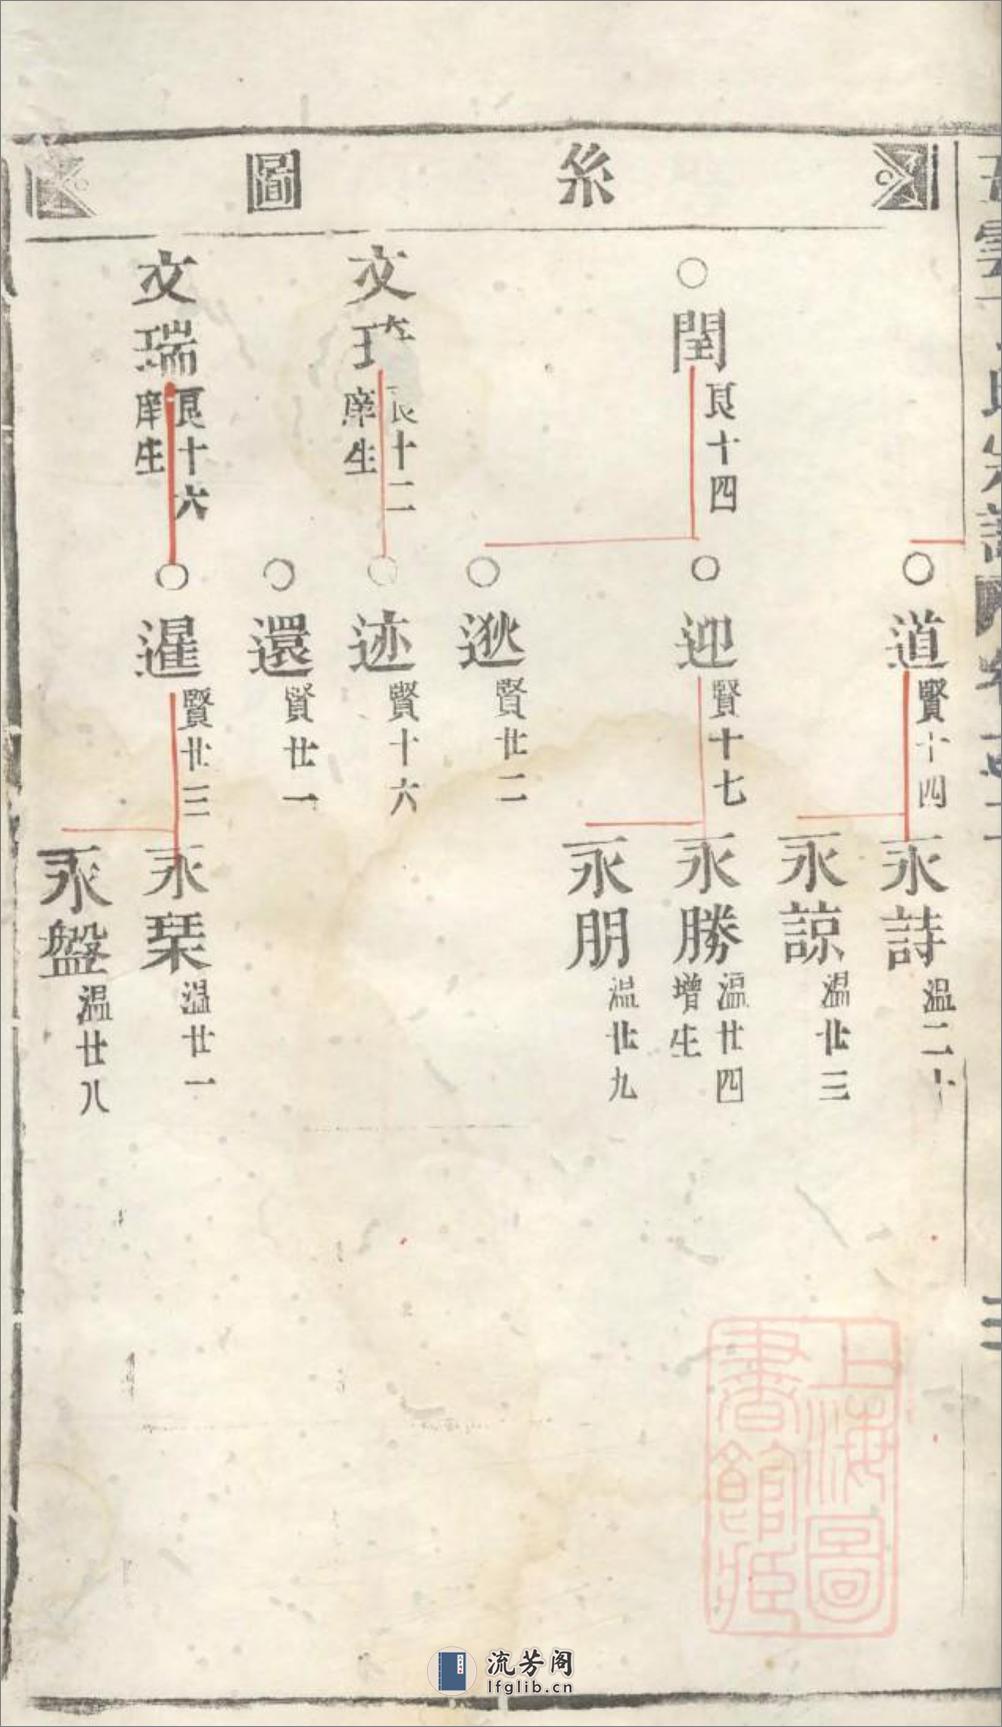 系圖
道 賢十四
永詩 温二十
永諒 温廿三
○閏 良十四
○迎 賢十七
永勝 温廿四 增生
永朋 温廿九
○逖 賢廿二
文 良十二 庠生
○迹 賢十六
○還 賢廿一
文瑞 良十六 庠生
○暹 賢廿三
永琹 温廿一
永盤 温廿八
上海圖書館藏
流芳阁
lfglib.cn